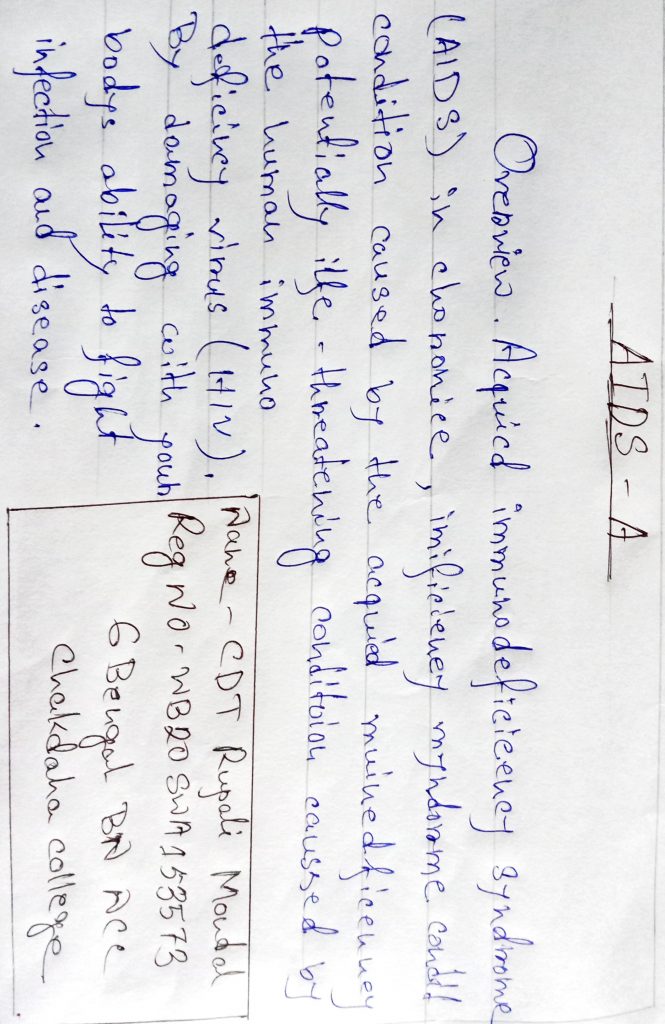 AIDS - A
Overview. Acquied immunodeficicency syndrome
(AIDS) in chononice, imificiency myndorome condi
condition caused by the acquied muinedficenney
Potentially ilfe - threatening conditoion caussed by
the human immuno
deficincy virus (HIV).
By damaging with your
bodys ability to fight
infection and disease.
Name - CDT Rupali Mondal
Reg NO - WB20SWA153573
6 Bengal BN NCC
Chakdaha college